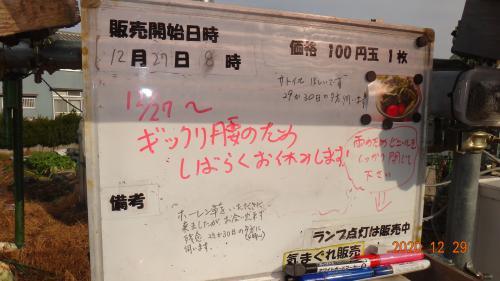 販売開始日時
12月27日8時
価格 100円玉 1枚
サトイモ ほしいです
29か30日の夕方伺います
12/27～
ギックリ腰のため
しばらくお休みします!
雨のためビニールを
しっかり閉じて
下さい
備考
ホーレン草を いただきに
来ましたが
29か30日の夕方に
伺います。
ランプ点灯は販売中
気まぐれ販売
2020 12 29